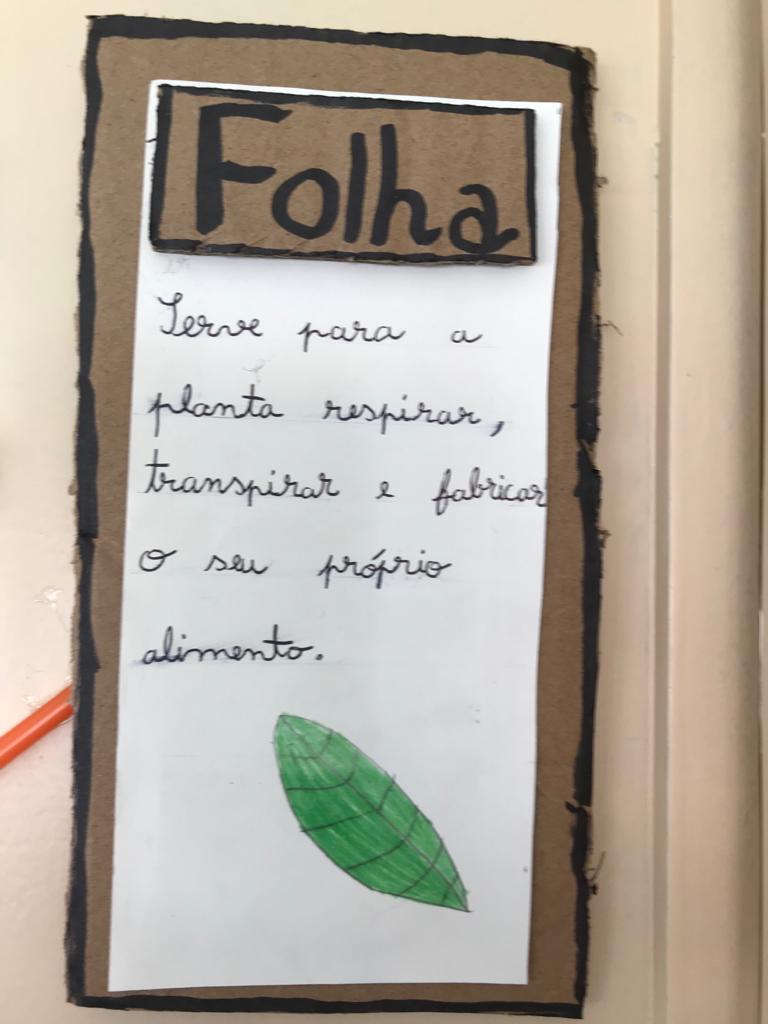 Folha
Serve para a
planta respirar,
transpirar e fabricar
o seu próprio
alimento.